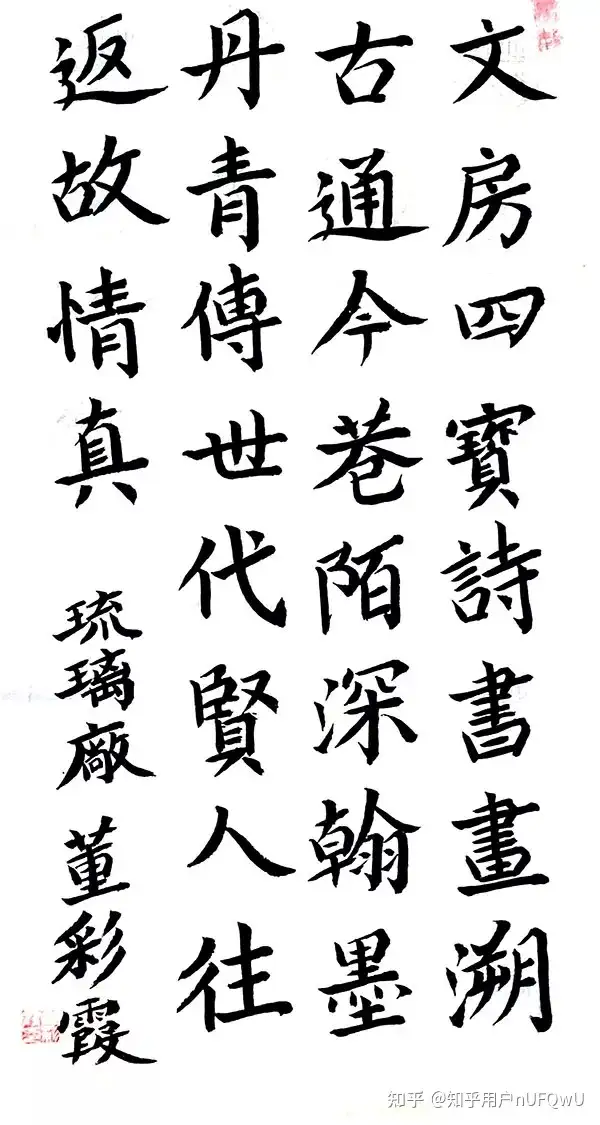 文房四寶詩書畫溯
古通今巷陌深翰墨
丹青傳世代賢人往
返故情真
琉璃廠 董彩霞
知乎 @知乎用户nUFQwU